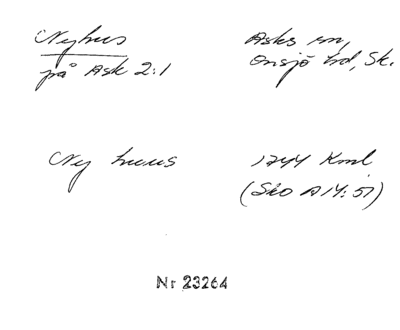 Nyhus Asks sn,
på Ask 2:1 Onsjö hd, Sk.
Ny huus 1744 Kml
(Sko A 14:51)
Nr 23264